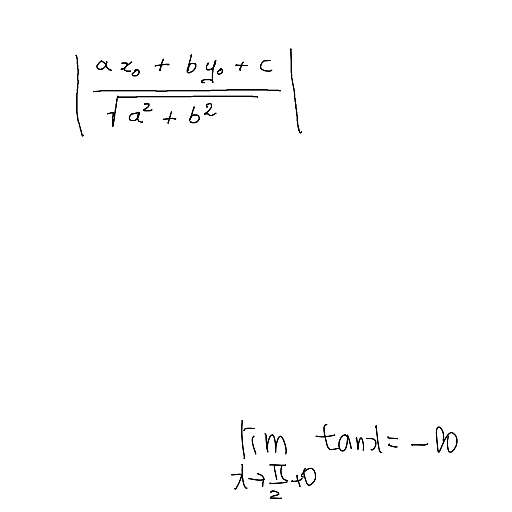 | (a x₀ + b y₀ + c) / √(a² + b²) |
lim_{x→π/2+0} tan x = −∞